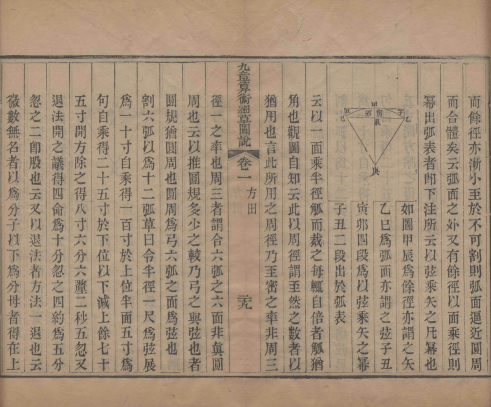 而餘徑漸小至於不可割則弧而逼近圓周
而合體矣云弧面之外又有餘徑以面乘徑則
冪出弧表者即下法所云以弦乘矢之凡冪也
甲
乙
丙
如圖甲辰爲餘徑亦謂之矢
乙巳爲弧面亦謂之弦子丑
寅夘四段爲以弦乘矢之冪
子丑二段出於弧表
云以一面乘半徑觚而裁之每輒自倍者觚猶
角也觀圖自知云此以周徑謂至然之數者以
猶用也言此所用之周徑乃至密之率非周三
九章算術細草圖說
卷一
方田
徑一之率也周三者謂合六弧之六面非眞圓
周也云以推圓規多少之較乃弓之與弦也者
圓規猶圓周也圓周爲弓六弧之面爲弦也
割六弧以爲十二弧草曰令半徑一尺爲弦展
爲一十寸自乘得一百寸於上位半面五寸爲
句自乘得二十五寸於下位以下減上餘七十
五寸開方除之得八寸六分六釐二秒五忽又
退法開之議得四命爲十分忽之四約爲五分
忽之二卽股也云又以退法者方法一退也云
微數無名者以爲分子以下爲分母者得在上